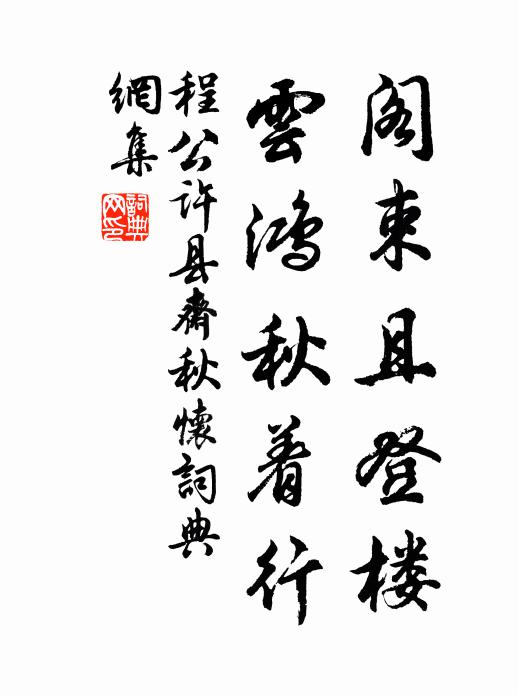 阁束且登楼
雲鸿秋着行
程公许县齋秋懷詞典
網集
詞典
网印